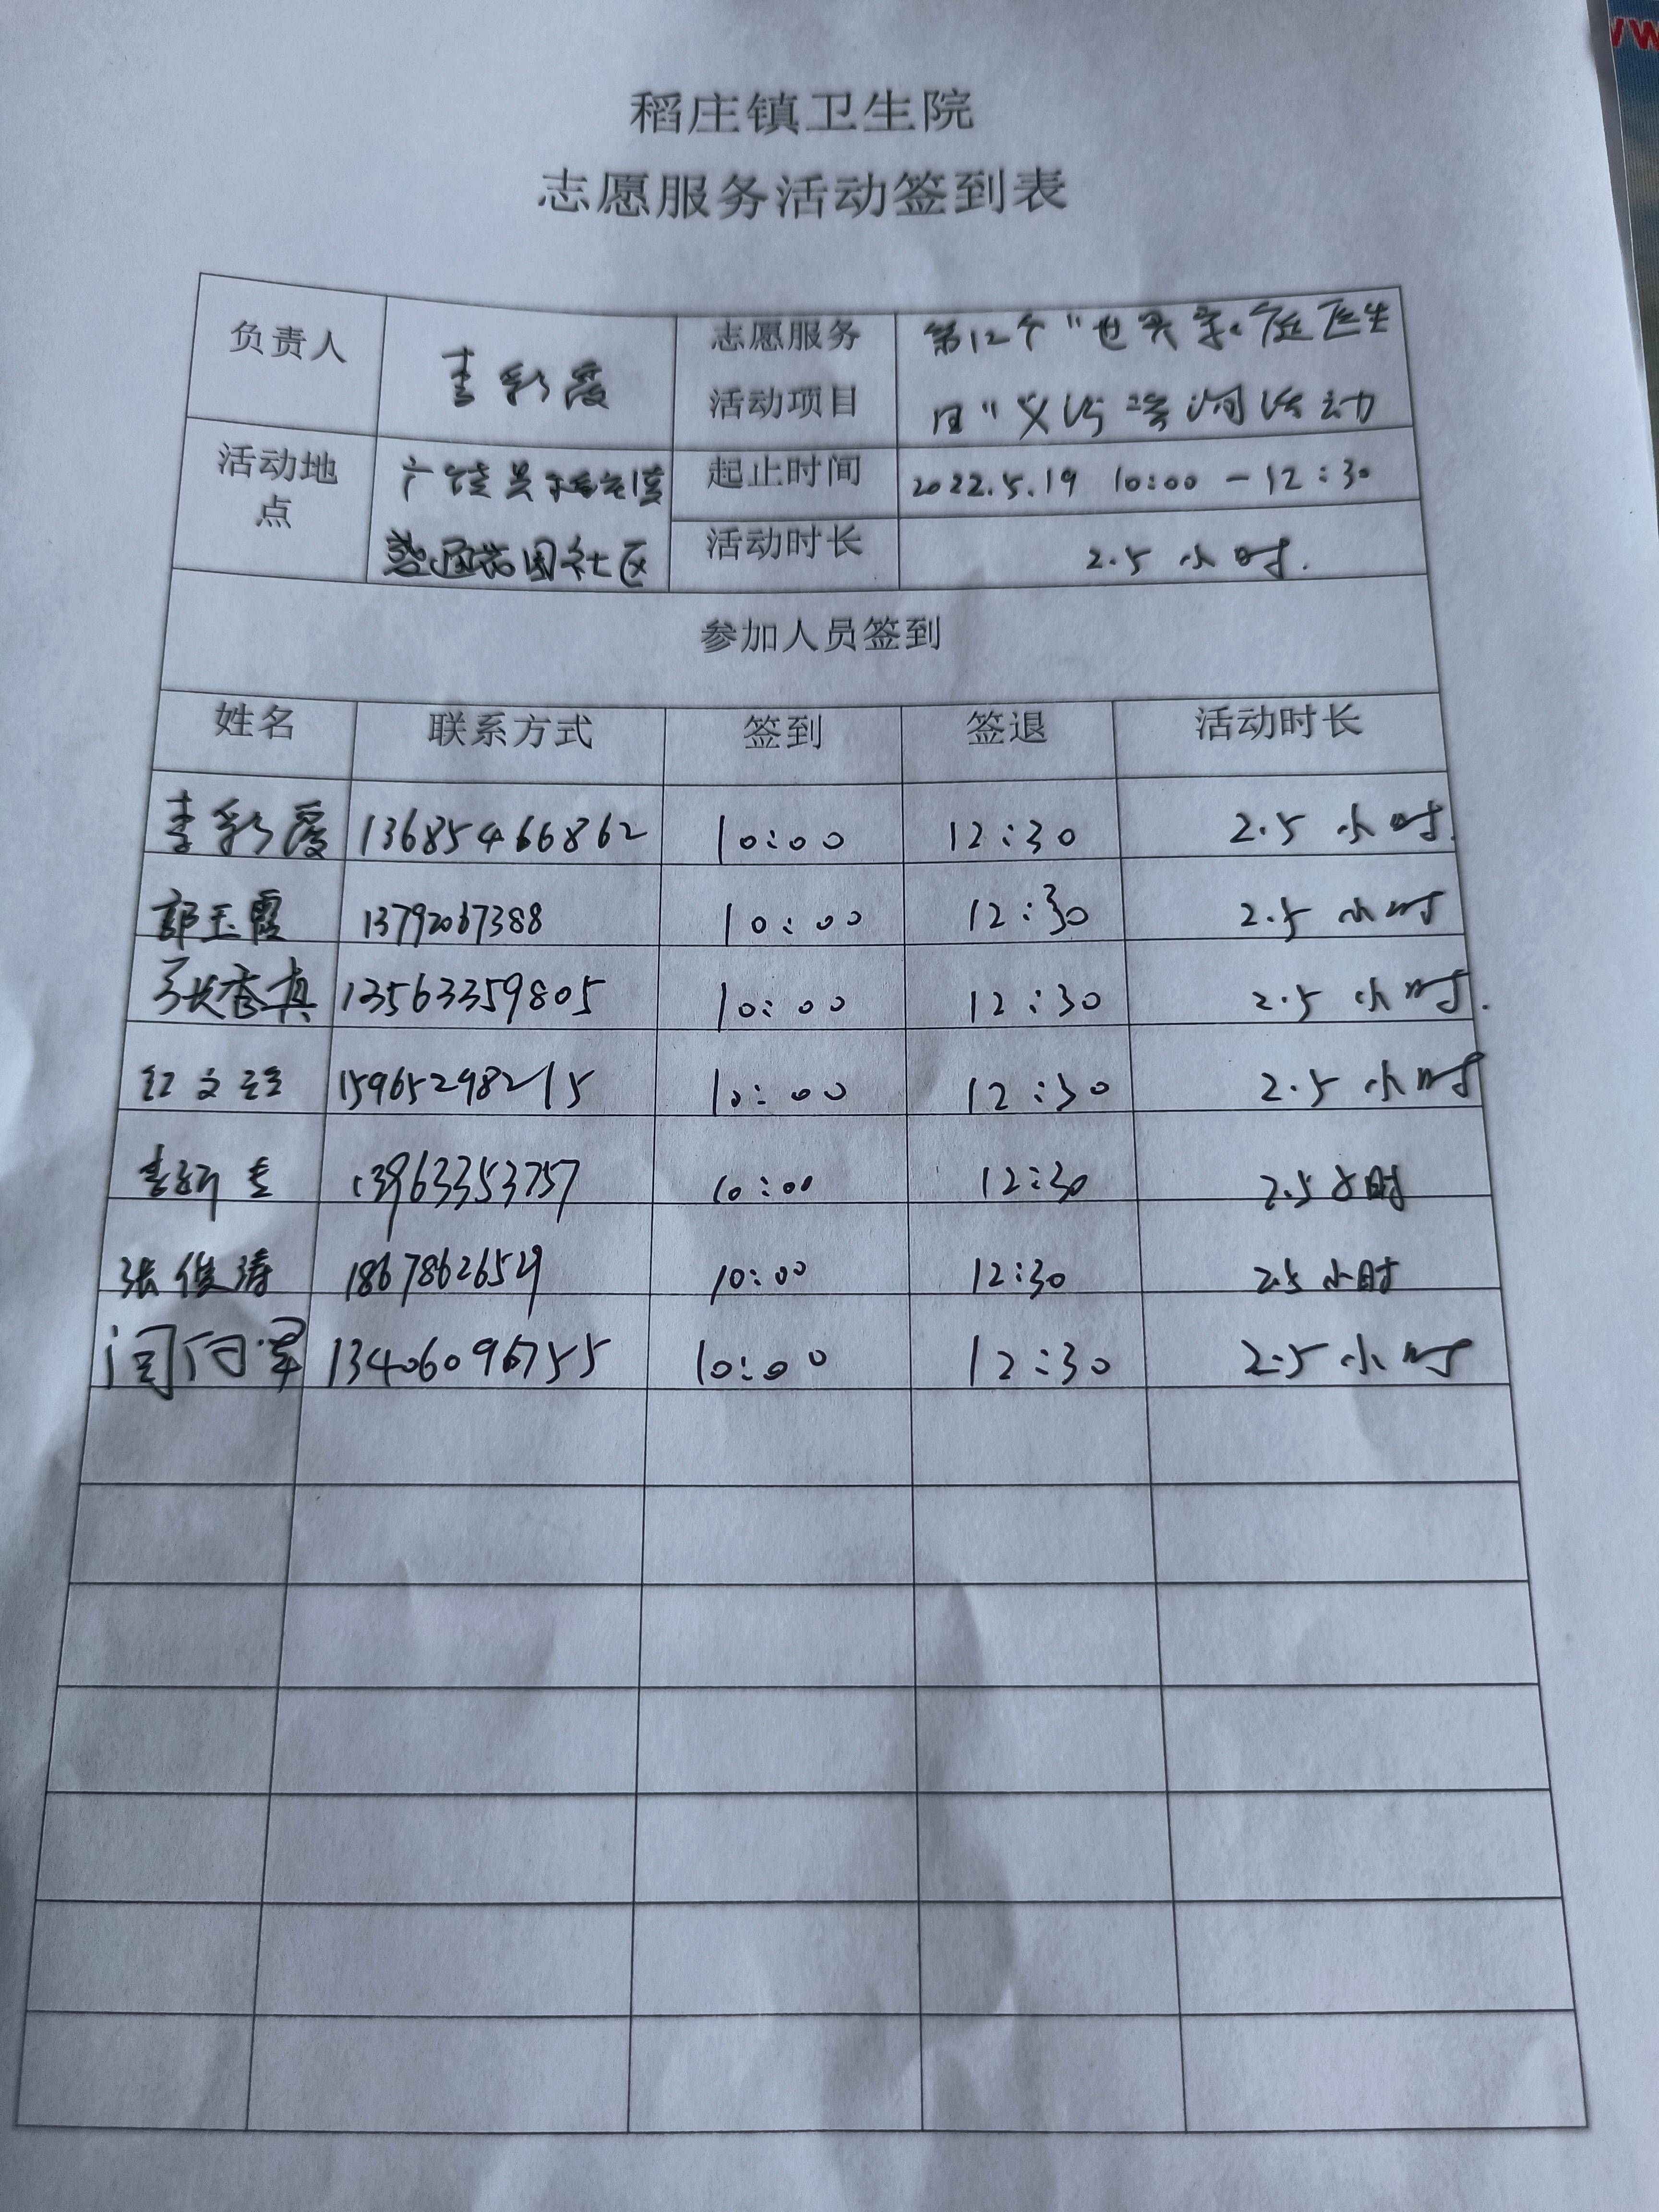 稻庄镇卫生院
志愿服务活动签到表
负责人 李彩霞 志愿服务 第12个"世界家庭医生
活动项目 日"义诊咨询活动
活动地 广饶县稻庄镇 起止时间 2022.5.19 10:00-12:30
点 花园社区 活动时长 2.5小时.
参加人员签到
姓名 联系方式 签到 签退 活动时长
李彩霞 13685466862 10:00 12:30 2.5小时.
郭玉霞 13792067388 10:00 12:30 2.5小时
张香真 13563359805 10:00 12:30 2.5小时.
15965298215 10:00 12:30 2.5小时
13963353757 10:00 12:30 2.5小时
张俊涛 10:00 12:30 2.5小时
13406096755 10:00 12:30 2.5小时